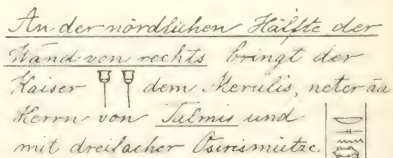 An der nördlichen Hälfte der
Wand von rechts bringt der
Kaiser dem Merulis, neter āa
Herrn von Talmis und
mit dreifacher Osirismütze.